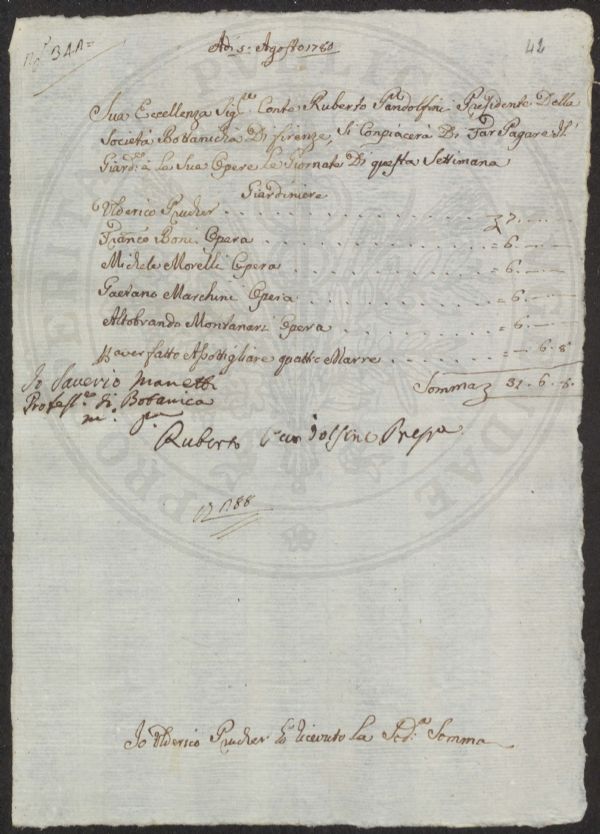 Adi 5: Agosto 1780
42
Sua Eccellenza Sig.re Conte Ruberto Pandolfini Presidente Della
Società Bottanicha Di firenze, Si Conpiacerà Di Far Pagare Il
Giard.e à la Sua Opere Le Giornate Di questa Settimana
Giardiniere
Ulderico Prucher . . . . . . . . . . 7. —
Franco Boni Opera . . . . . . . . . = 6. —
Michele Morelli Opera . . . . . . . . = 6. —
Gaetano Marchini Opera . . . . . . . . = 6. —
Altobrando Montanari Opera . . . . . . . = 6. —
aver fatto Asottigliare quattro Marre . . . . = — 6. 8
Somma 31. 6. 8.
Io Saverio Manetti
Profess.re di Botanica
m.o p.a
Ruberto Pandolfini Presid.e
Io Ulderico Prucher ho ricevuto La Sod.a Somma